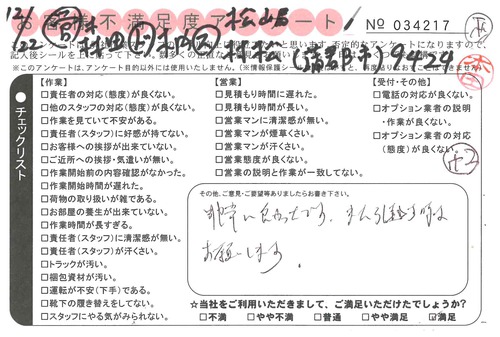 お客様不満足度アンケート
No 034217
12/22
松山
9424
+2
記入後シールを上に貼って下さい。
(※情報保護シールにて
チェックリスト
【作業】
□責任者の対応(態度)が良くない。
□他のスタッフの対応(態度)が良くない。
□作業を見ていて不安がある。
□責任者(スタッフ)に好感が持てない。
□お客様への挨拶が出来ていない。
□ご近所への挨拶・気遣いが無い。
□作業開始前の内容確認がなかった。
□作業開始時間が遅れた。
□荷物の取り扱いが雑である。
□お部屋の養生が出来ていない。
□作業時間が長すぎる。
□責任者(スタッフ)に清潔感が無い。
□責任者(スタッフ)が汗くさい。
□トラックが汚い。
□梱包資材が汚い。
□運転が不安(下手)である。
□靴下の履き替えをしてない。
□スタッフにやる気がみられない。
【営業】
□見積もり時間に遅れた。
□見積もり時間が長い。
□営業マンに清潔感が無い。
□営業マンが煙草くさい。
□営業マンが汗くさい。
□営業態度が良くない。
□営業の説明と作業が一致してない。
【受付・その他】
□電話の対応が良くない。
□オプション業者の説明
・作業が良くない。
□オプション業者の対応
(態度)が良くない。
その他、ご意見・ご要望等ありましたらお書き下さい。
非常に良かったです。また引越す時は
お願いします
☆当社をご利用いただきまして、ご満足いただけたでしょうか?
□不満 □やや不満 □普通 □やや満足 ☑満足